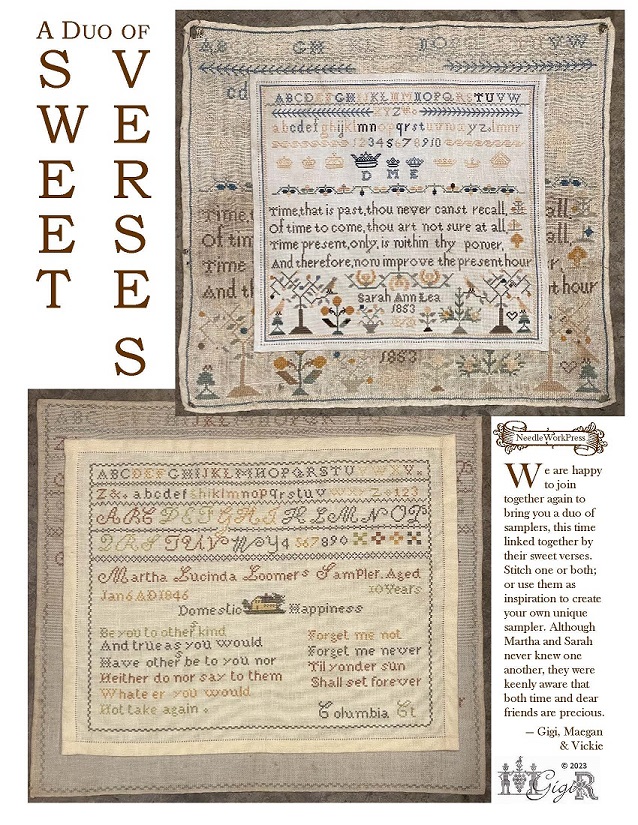 A DUO OF
SWEET
VERSES
AB GH VW
cd
ABCDEFGHIJKLMNOPQRSTUVW
XYZ
abcdefghijklmnopqrstuvwxyz.lmnr
12345678910
D M E
Time, that is past, thou never canst recall,
Of time to come, thou art not sure at all,
Time present, only, is within thy power,
And therefore, now improve the present hour
Sarah Ann Lea
1853
Time,
Of tim
Time
And th
all,
all,
t hour
1853
ABCDEFGHIJKLMNOPQRSTUVWXY.
Z&. abcdefghiklmnopqrstuv
wxyz. 123
ABC DEF GHI KLMNOP
QRS TUV WY 4 567890
Martha Lucinda Loomers Sampler. Aged
Jan 6 AD 1846
10 Years
Domestic Happiness
Be you to others kind
And true as you would
Have others be to you nor
Neither do nor say to them
Whate er you would
Not take again.
Forget me not
Forget me never
Til yonder sun
Shall set forever
Columbia Ct
NeedleWorkPress
We are happy
to join
together again to
bring you a duo of
samplers, this time
linked together by
their sweet verses.
Stitch one or both;
or use them as
inspiration to create
your own unique
sampler. Although
Martha and Sarah
never knew one
another, they were
keenly aware that
both time and dear
friends are precious.
— Gigi, Maegan
& Vickie
© 2023
GigiR